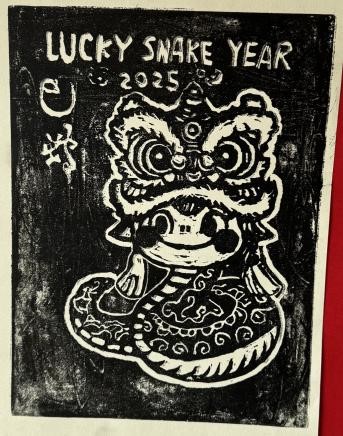 LUCKY SNAKE YEAR
2025